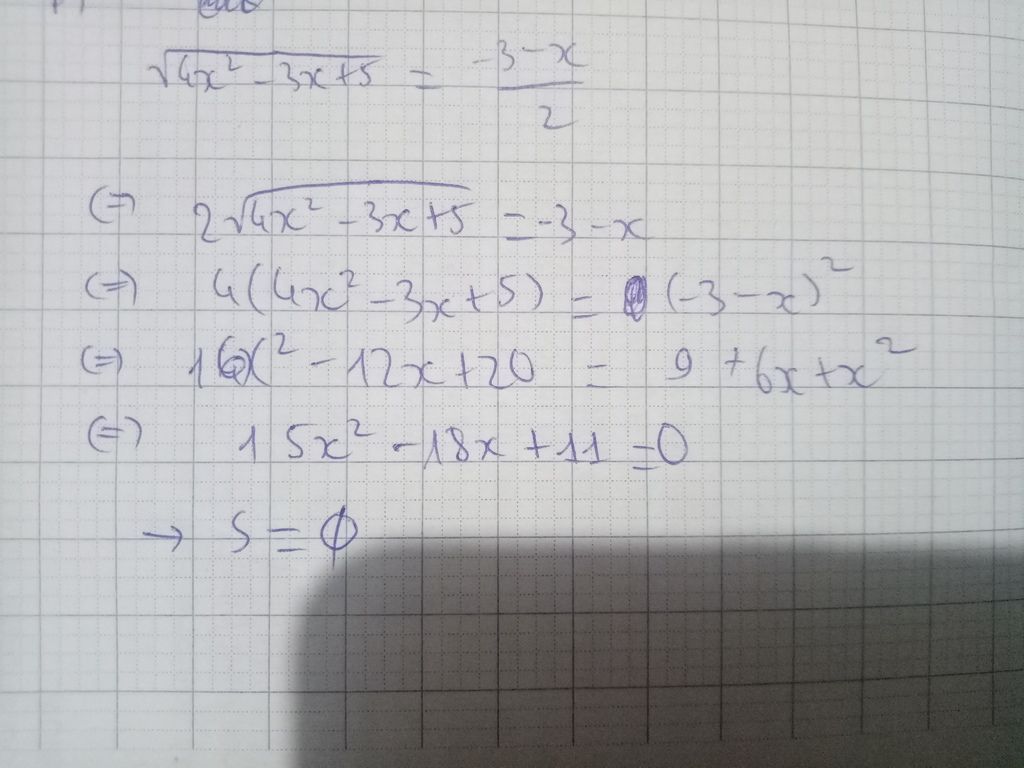 √(4x² - 3x + 5) = (-3 - x)/2
(=) 2√(4x² - 3x + 5) = -3 - x
(=) 4(4x² - 3x + 5) = (-3 - x)²
(=) 16x² - 12x + 20 = 9 + 6x + x²
(=) 15x² - 18x + 11 = 0
→ S = ∅